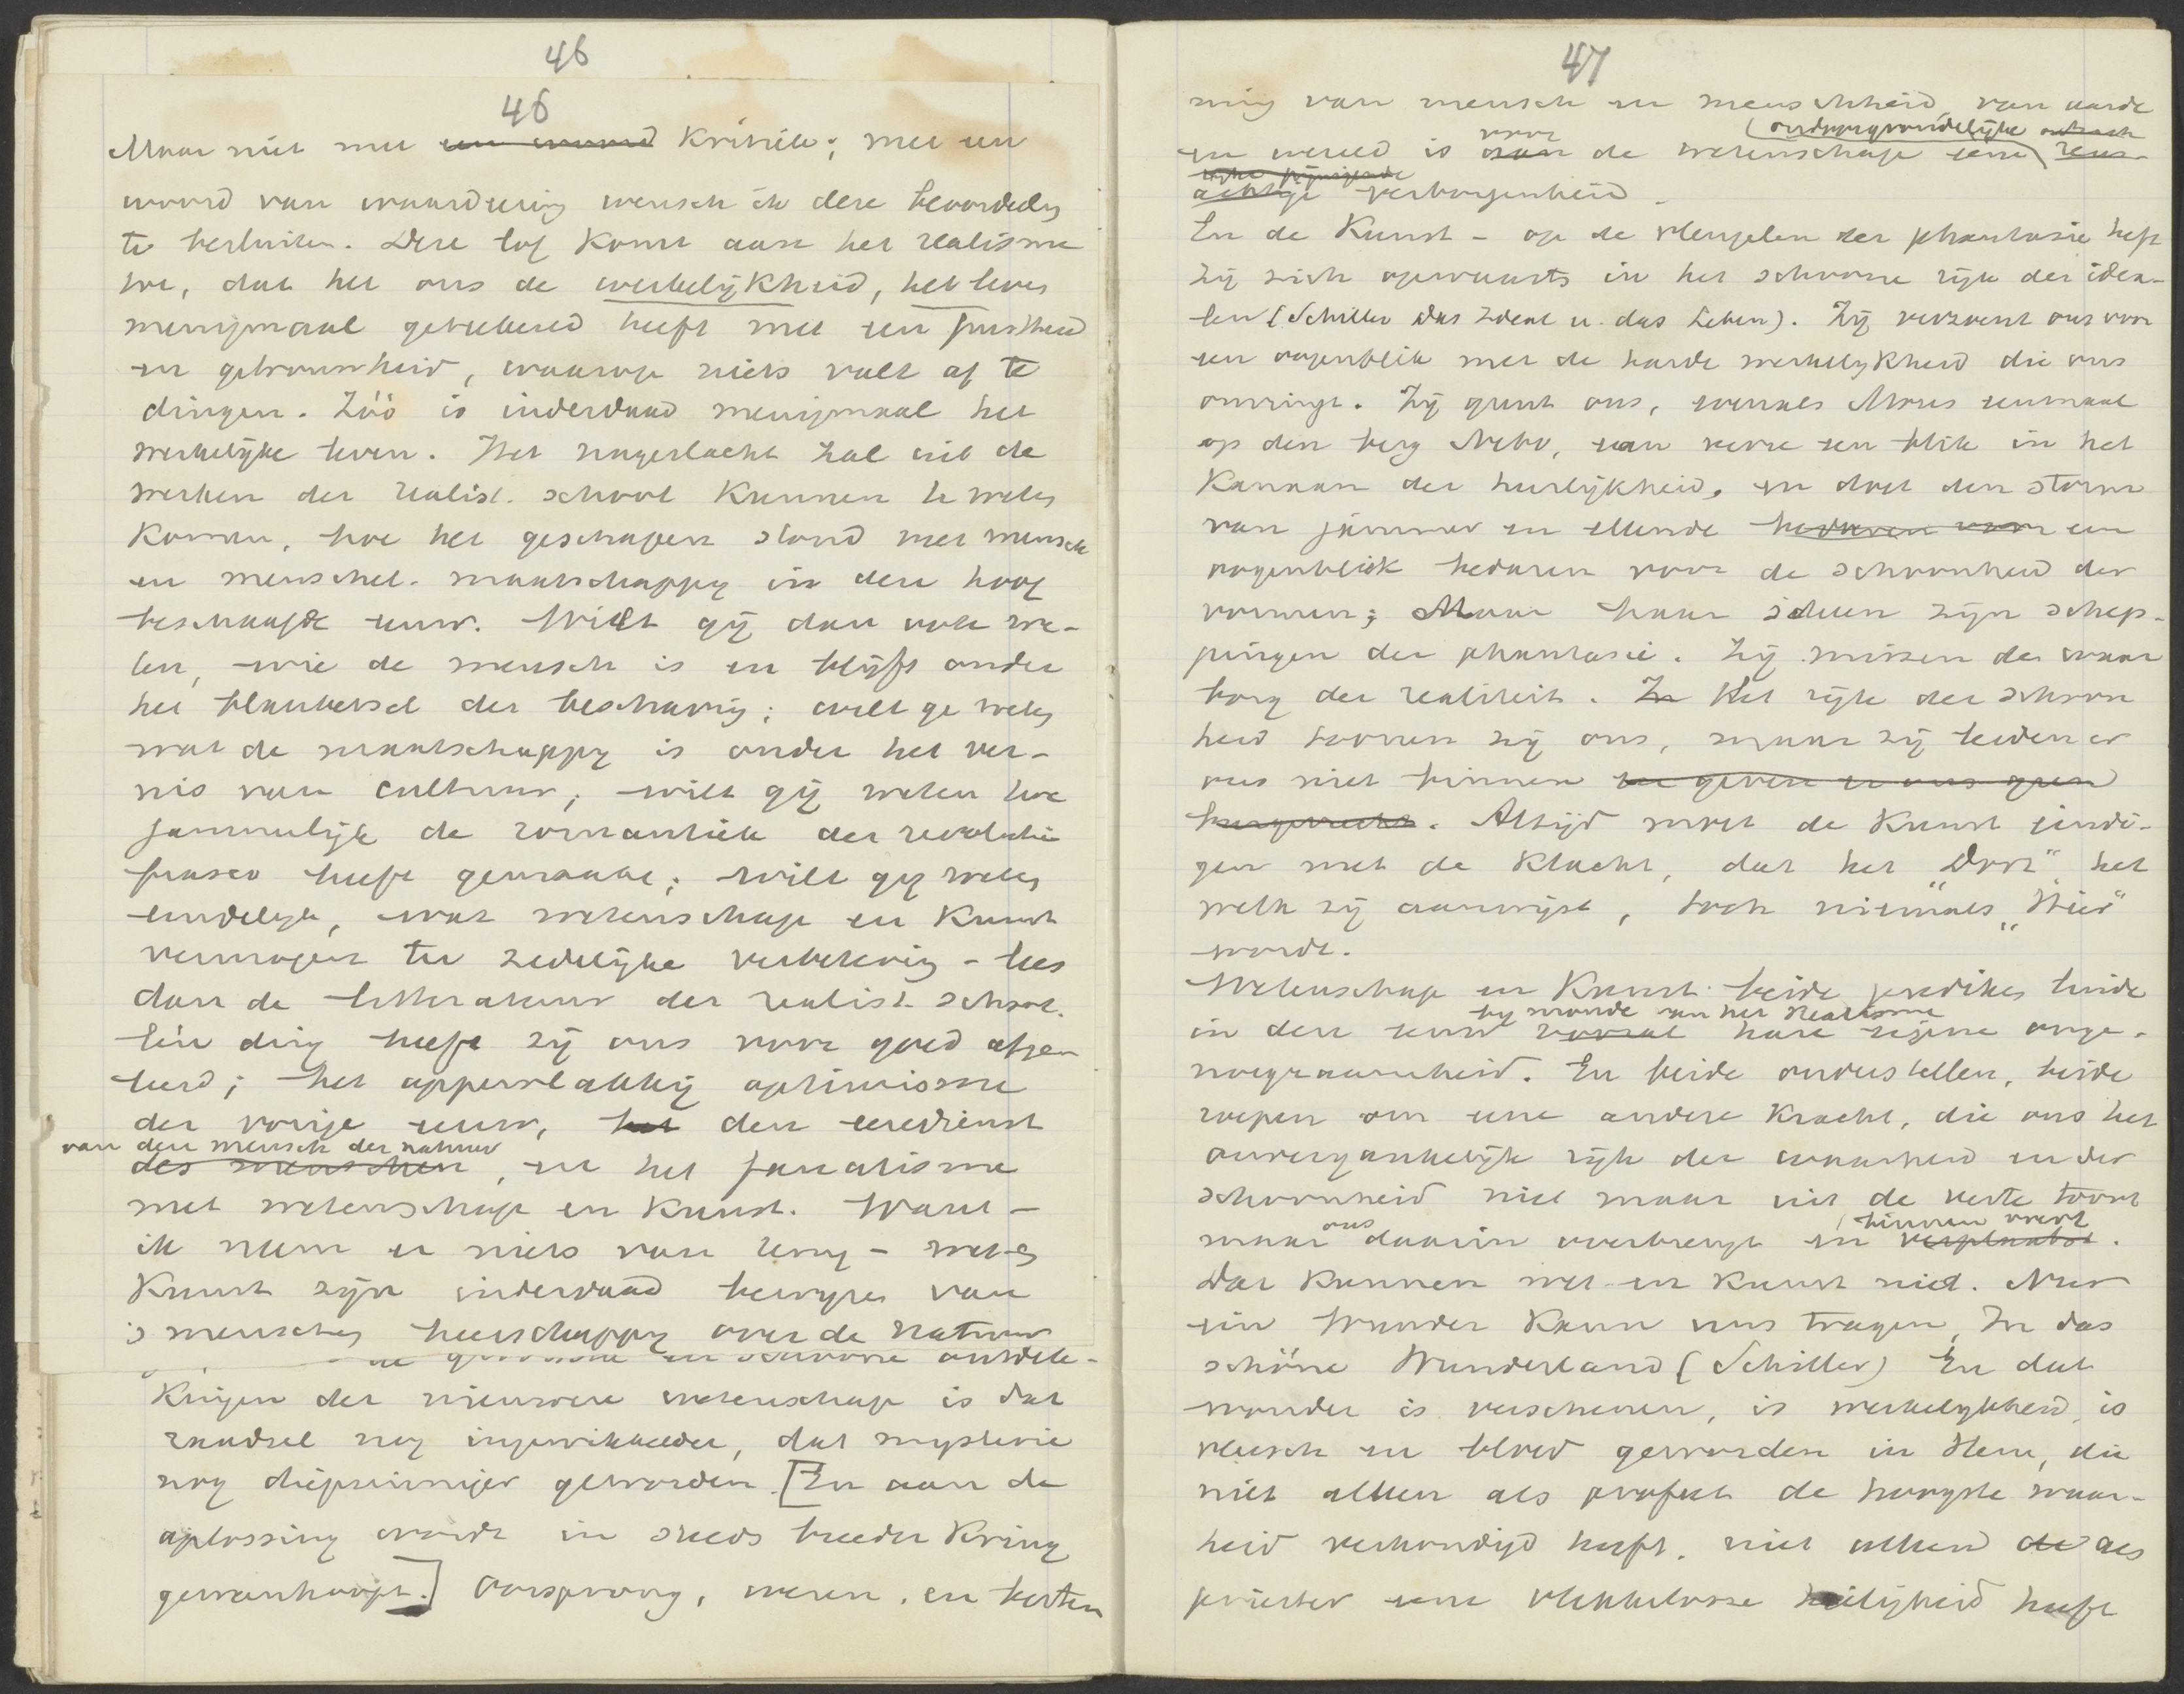 46
46
Maar niet met een woord kritiek; met een
woord van waardeering wensch ik deze beoordeling
te besluiten. Deze lof komt aan het realisme
toe, dat het ons de werkelijkheid, het leven
menigmaal geteekend heeft met een juistheid
en getrouwheid, waarop niets valt af te
dingen. Zóó is inderdaad menigmaal het
werkelijke leven. Het nageslacht zal uit de
werken der realist. school kunnen te weten
komen, hoe het geschapen stond met mensch
en menschel. maatschappij in deze hoog
beschaafde eeuw. Wilt gij dan ook we-
ten, wie de mensch is en blijft onder
het blanketsel der beschaving; wilt ge weten
wat de maatschappij is onder het ver-
nis van cultuur; wilt gij weten hoe
jammerlijk de romantiek der revolutie
fiasco heeft gemaakt; wilt gij weten
eindelijk, wat wetenschap en kunst
vermogen ter zedelijke verbetering - lees
dan de litteratuur der realist. school.
Eén ding heeft zij ons voor goed afge-
leerd; het oppervlakkig optimisme
der vorige eeuw, het den eeredienst
van den mensch der natuur
des menschen, en het fanatisme
met wetenschap en kunst. Want -
ik neem er niets van terug - wet. en
kunst zijn inderdaad bewijzen van
's menschen heerschappij over de natuur
de grootsche en schoone ontdek-
kingen der nieuwere wetenschap is dat
raadsel nog ingewikkelder, dat mysterie
nog diepzinniger geworden. [En aan de
oplossing wordt in steeds breeder kring
gewanhoopt.] Oorsprong, wezen, en bestem
47
ming van mensch en menschheid, van aarde
voor (ondoorgrondelijke
en wereld is van de wetenschap eene reus-
achtige verborgenheid.
En de Kunst - op de vleugelen der phantasie heft
zij zich opwaarts in het schoone rijk der idea-
len (Schiller Das Ideal u. das Leben). Zij verzoent ons voor
een oogenblik met de harde werkelijkheid die ons
omringt. Zij gunt ons, evenals Mozes eenmaal
op den berg Nebo, van verre een blik in het
Kanaan der heerlijkheid, en doet den storm
van jammer en ellende bedaren voor een
oogenblick bedaren voor de schoonheid der
vormen; Maar haar ideeën zijn schep-
pingen der phantasie. Zij missen den waar
borg der realiteit. In Het rijk der schoon
heid toonen zij ons, maar zij leiden er
ons niet binnen en geven er ons geen
burgerrecht. Altijd moet de kunst eindi-
gen met de klacht, dat het "Dort" het
welk zij aanwijst, toch niemals "Hier"
wordt.
Wetenschap en Kunst beide prediken luide
bij monde van het Realisme
in deze eeuw vooral hare eigene onge-
noegzaamheid. En beide onderstellen, beide
roepen om eene andere kracht, die ons het
onvergankelijk rijk der waarheid en der
schoonheid niet maar uit de verte toont
ons (binnen voert
maar daarin overbrengt en verplaatst.
Dat kunnen wet. en kunst niet. Nur
ein Wunder kann uns tragen, In das
schöne Wunderland (Schiller) En dat
wonder is verschenen, is werkelijkheid, is
vleesch en bloed geworden in Hem, die
niet alleen als profeet de hoogste waar-
heid verkondigd heeft, niet alleen de als
priester eene vlekkelooze heiligheid heeft